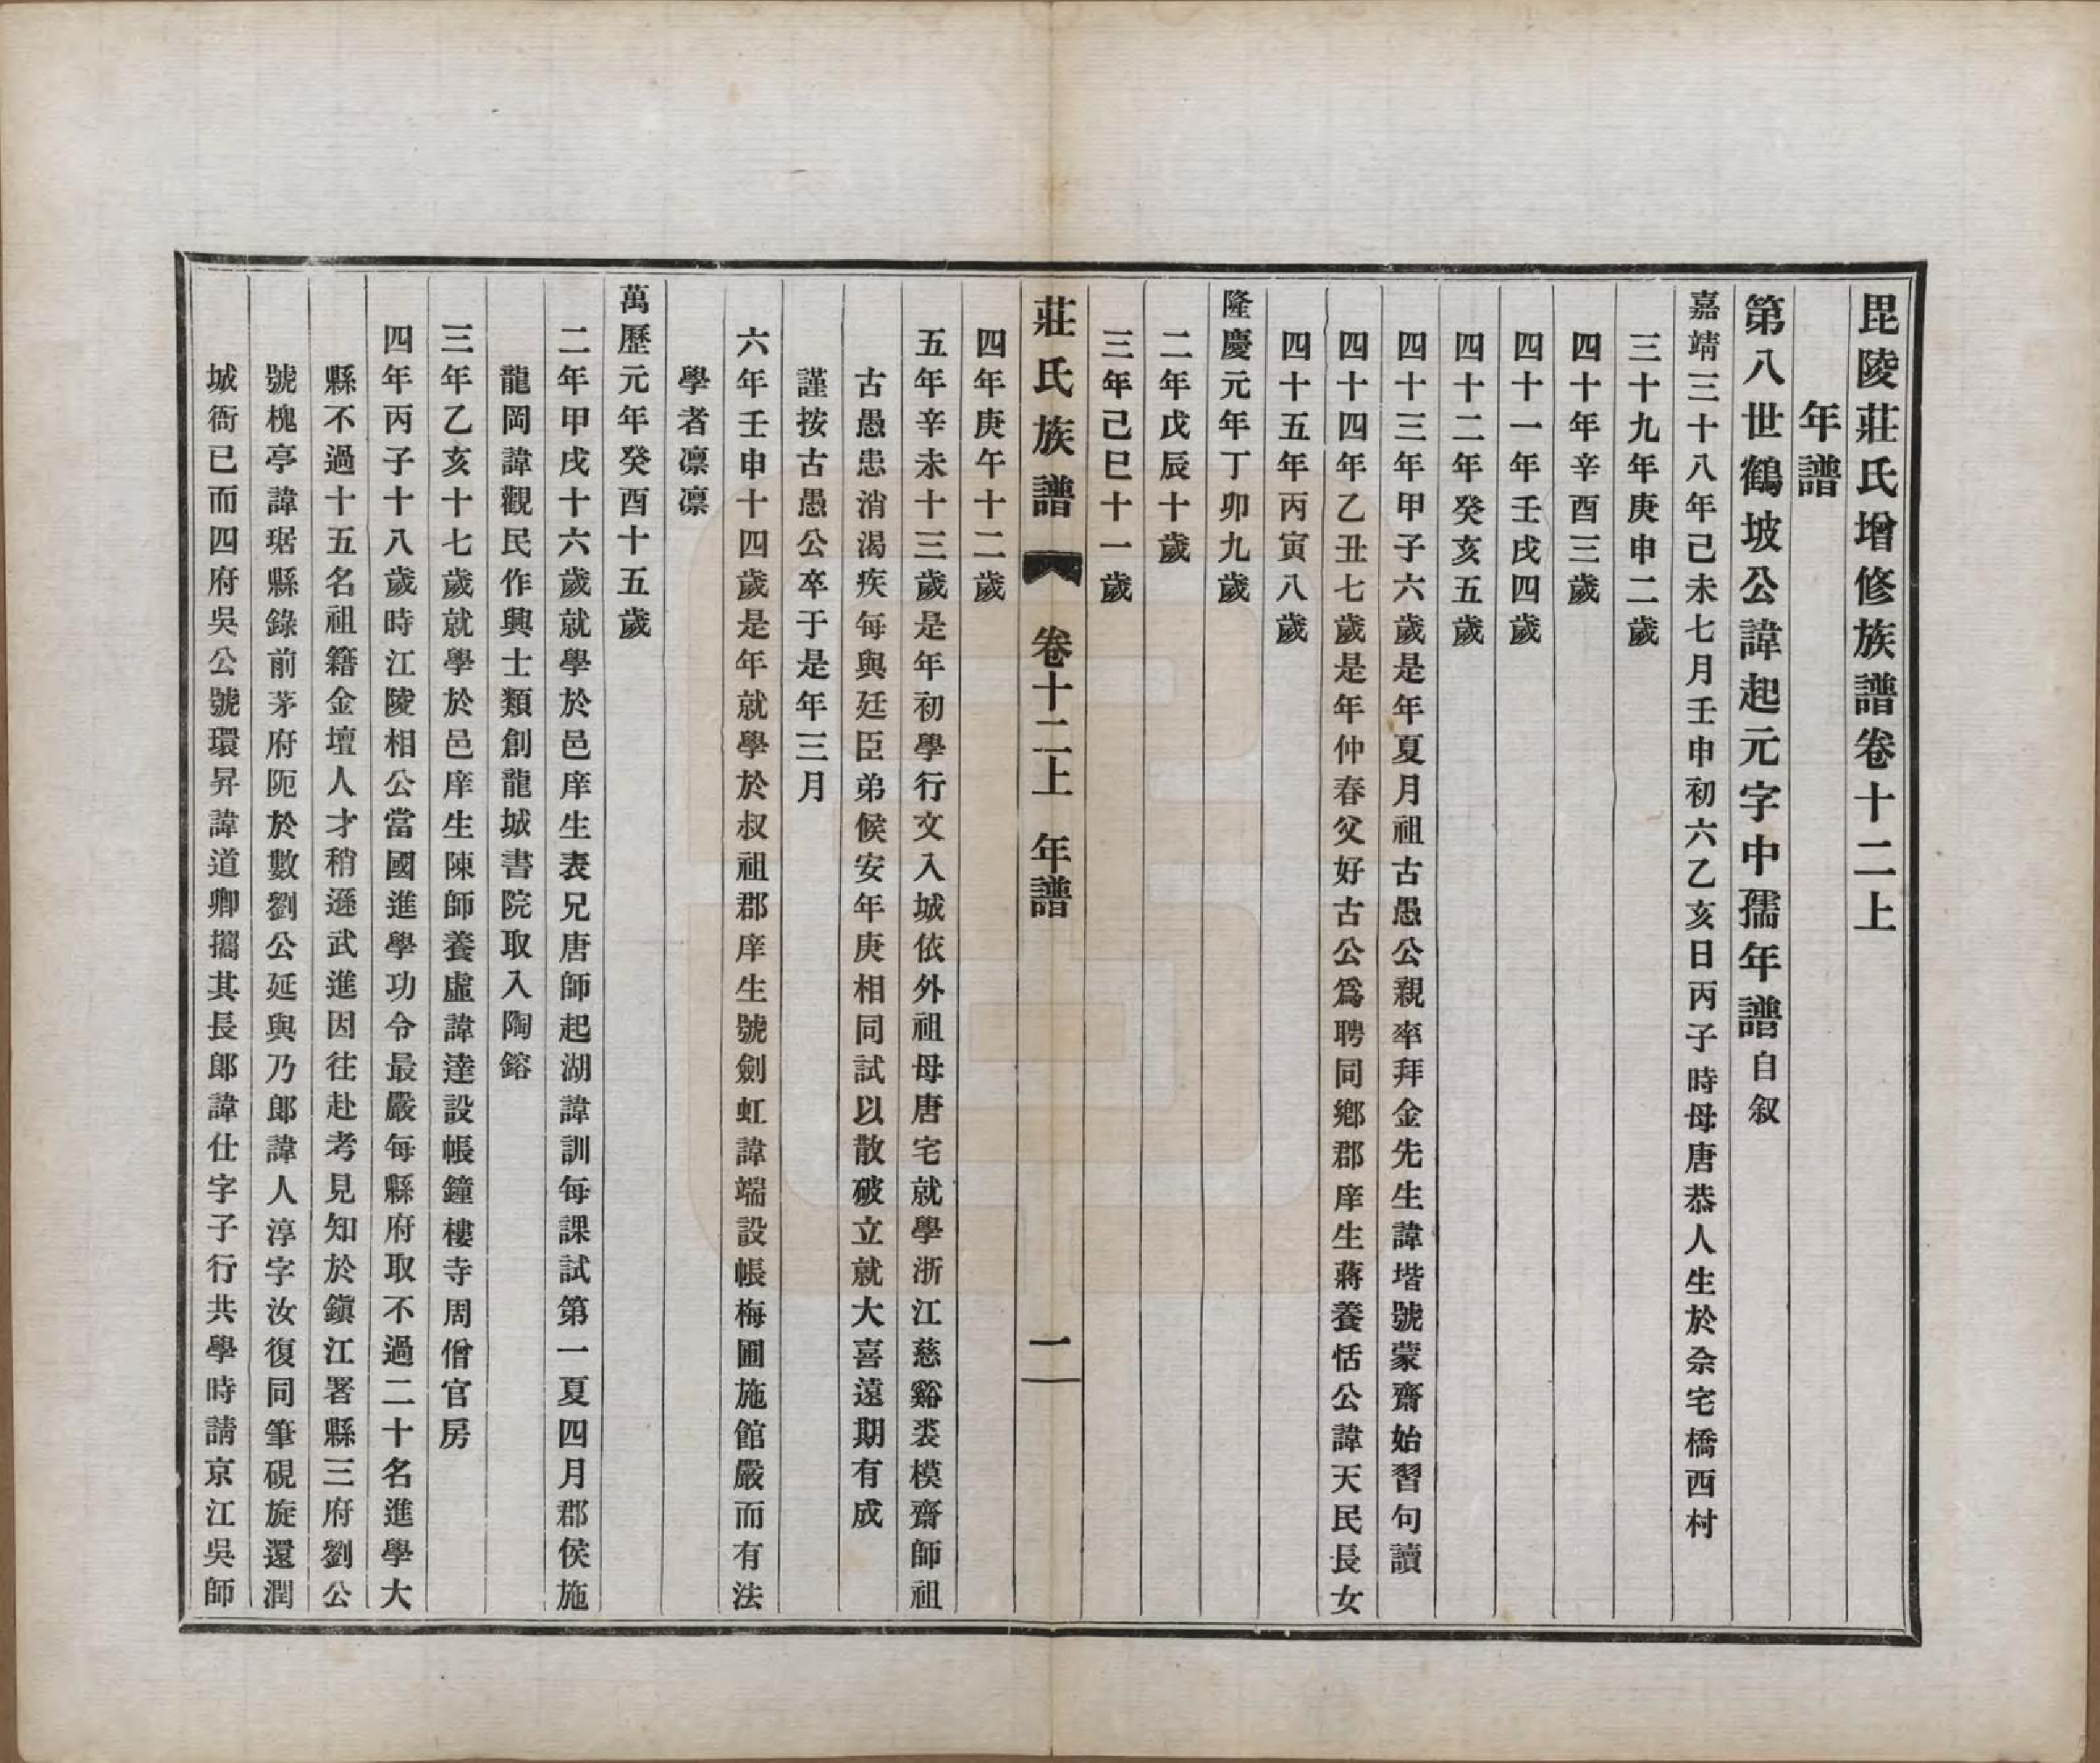 毘陵莊氏增修族譜卷十二上
年譜
第八世鶴坡公諱起元字中孺年譜自叙
嘉靖三十八年己未七月壬申初六乙亥日丙子時母唐恭人生於余宅橋西村
三十九年庚申二歲
四十年辛酉三歲
四十一年壬戌四歲
四十二年癸亥五歲
四十三年甲子六歲是年夏月祖古愚公親率拜金先生諱堦號蒙齋始習句讀
四十四年乙丑七歲是年仲春父好古公爲聘同鄉郡庠生蔣養恬公諱天民長女
四十五年丙寅八歲
隆慶元年丁卯九歲
二年戊辰十歲
三年己巳十一歲
莊氏族譜 卷十二上 年譜 一
四年庚午十二歲
五年辛未十三歲是年初學行文入城依外祖母唐宅就學浙江慈谿裘模齋師祖
古愚患消渴疾每與廷臣弟候安年庚相同試以散破立就大喜遠期有成
謹按古愚公卒于是年三月
六年壬申十四歲是年就學於叔祖郡庠生號劍虹諱端設帳梅圃施館嚴而有法
學者凛凛
萬歷元年癸酉十五歲
二年甲戌十六歲就學於邑庠生表兄唐師起湖諱訓每課試第一夏四月郡侯施
龍岡諱觀民作興士類創龍城書院取入陶鎔
三年乙亥十七歲就學於邑庠生陳師養虛諱達設帳鐘樓寺周僧官房
四年丙子十八歲時江陵相公當國進學功令最嚴每縣府取不過二十名進學大
縣不過十五名祖籍金壇人才稍遜武進因往赴考見知於鎭江署縣三府劉公
號槐亭諱琚縣錄前茅府阨於數劉公延與乃郎諱人淳字汝復同筆硯旋還潤
城衙已而四府吳公號環昇諱道卿攜其長郎諱仕字子行共學時請京江吳師